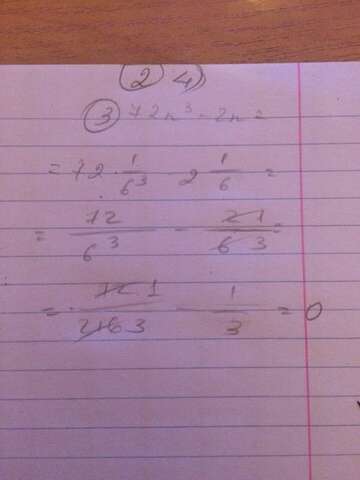 ② 4)
③ 72n³ - 2n =
= 72 · 1/6³ - 2 1/6 =
= 72/6³ - 2 1/6 3 =
= 72 1/216 3 - 1/3 = 0